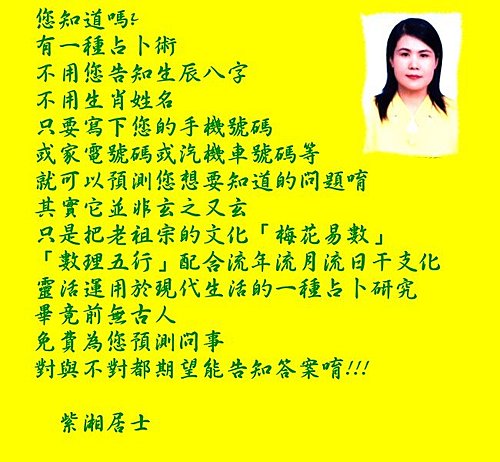 您知道嗎?
有一種占卜術
不用您告知生辰八字
不用生肖姓名
只要寫下您的手機號碼
或家電號碼或汽機車號碼等
就可以預測您想要知道的問題唷
其實它並非玄之又玄
只是把老祖宗的文化「梅花易數」
「數理五行」配合流年流月流日干支化
靈活運用於現代生活的一種占卜研究
畢竟前無古人
免費為您預測問事
對與不對都期望能告知答案唷!!!
紫湘居士